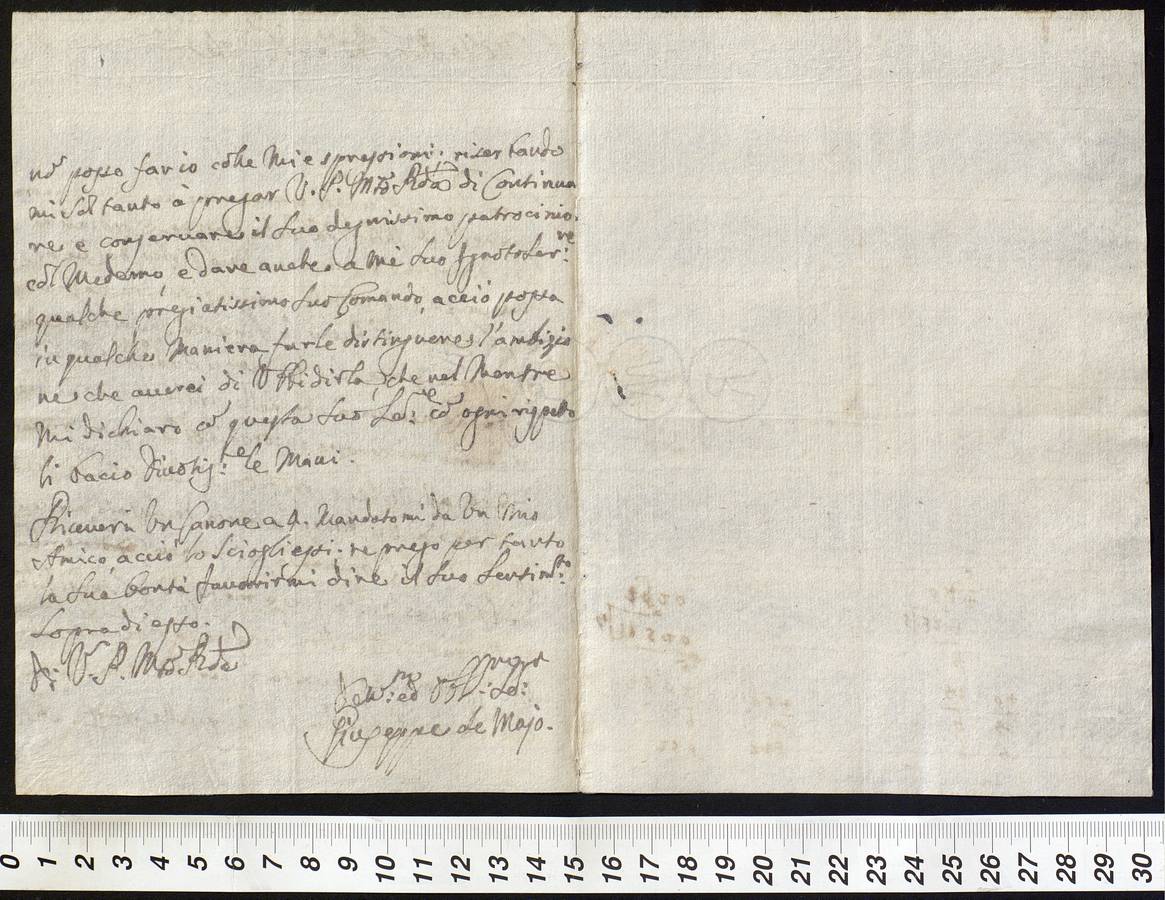 nō posso far io cōlle Mie espressioni: riserbando
mi sol tanto à pregar V. P. Mto Rda di Continua
re e conservare il suo degnissimo patrocinio
cōl Medemo, e dare anche a Me suo Ignoto Ser:re
qualche pregiatissimo suo Comando, acciò possa
in qualche Maniera farle distinguere l'ambizio
ne che averei di Obbidirla, che nel Mentre
Mi dichiaro cō questa suo Se:re cō ogni rispetto
li bacio divotis:te le Mani.
Riceverà Un Canone a 4. Mandatomi da Un Mio
Amico acciò lo Sciogliessi. ne prego per tanto
la Sua bontà favorirmi dire il suo Sentim:to
Sopra di esso.
Di V. P. Mto Rda
Dev:mo ed Obl: Se:
Giuseppe de Majo.
0 1 2 3 4 5 6 7 8 9 10 11 12 13 14 15 16 17 18 19 20 21 22 23 24 25 26 27 28 29 30